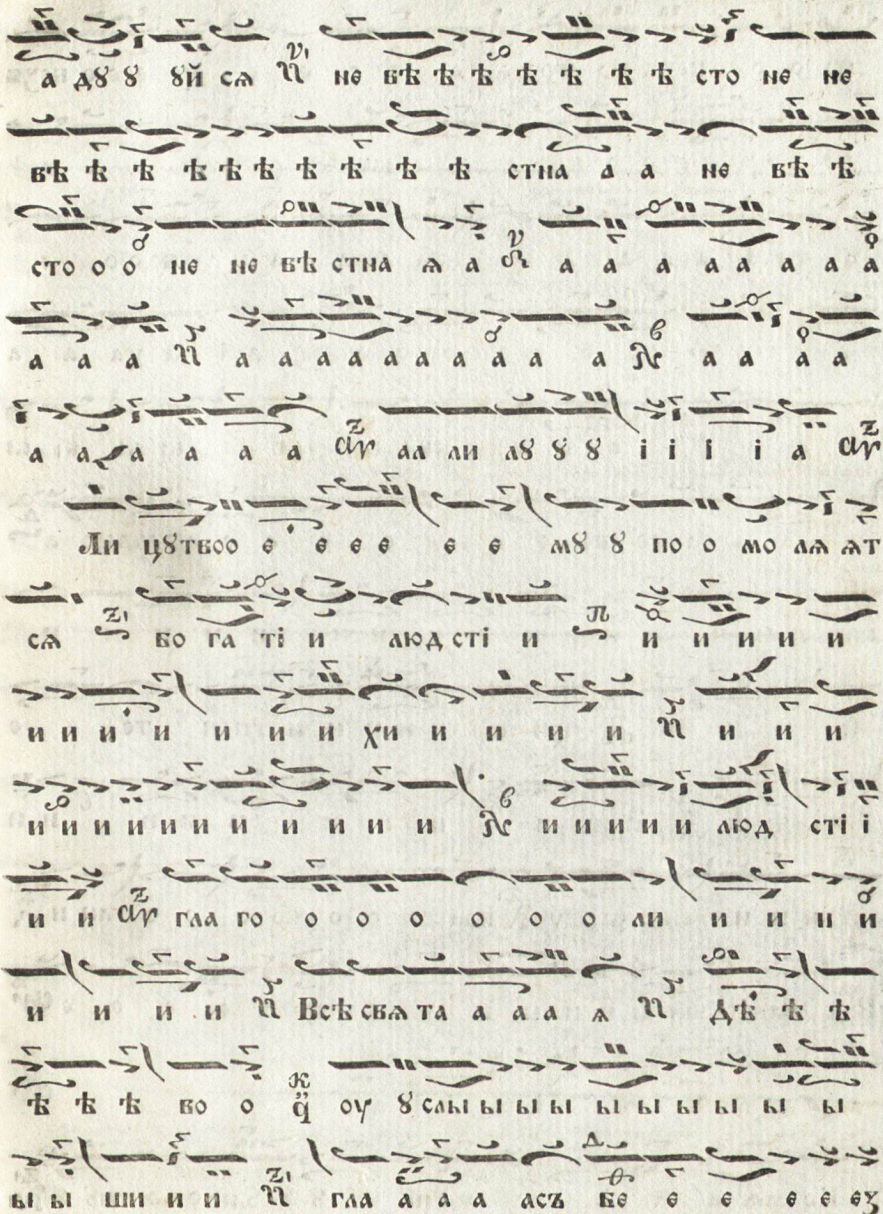 а дꙋ ꙋ ꙋй сѧ не вѣ ѣ ѣ ѣ ѣ ѣ ѣ сто не не
вѣ ѣ ѣ ѣ ѣ ѣ ѣ ѣ ѣ ѣ стна а а не вѣ ѣ
сто о о не не вѣ стна ѧ а а а а а а а а а
а а а а а а а а а а а а а а а а а
а а а а а а ал ли лꙋ ꙋ ꙋ і і і і а
Ли цꙋтвоо е е е е е е мꙋ ꙋ по о мо лѧ ѧт
сѧ бо га ті и люд сті и и и и и и
и и и и и и и хи и и и и и и и
и и и и и и и и и и и и и и и и люд сті і
и и гла го о о о о о о ли и и и и
и и и и Всѣ свѧ та а а а ѧ Дѣ ѣ ѣ
ѣ ѣ ѣ во о оу ꙋ слы ы ы ы ы ы ы ы ы ы
ы ы ши и и гла а а а асъ бе е е е е еꙁ